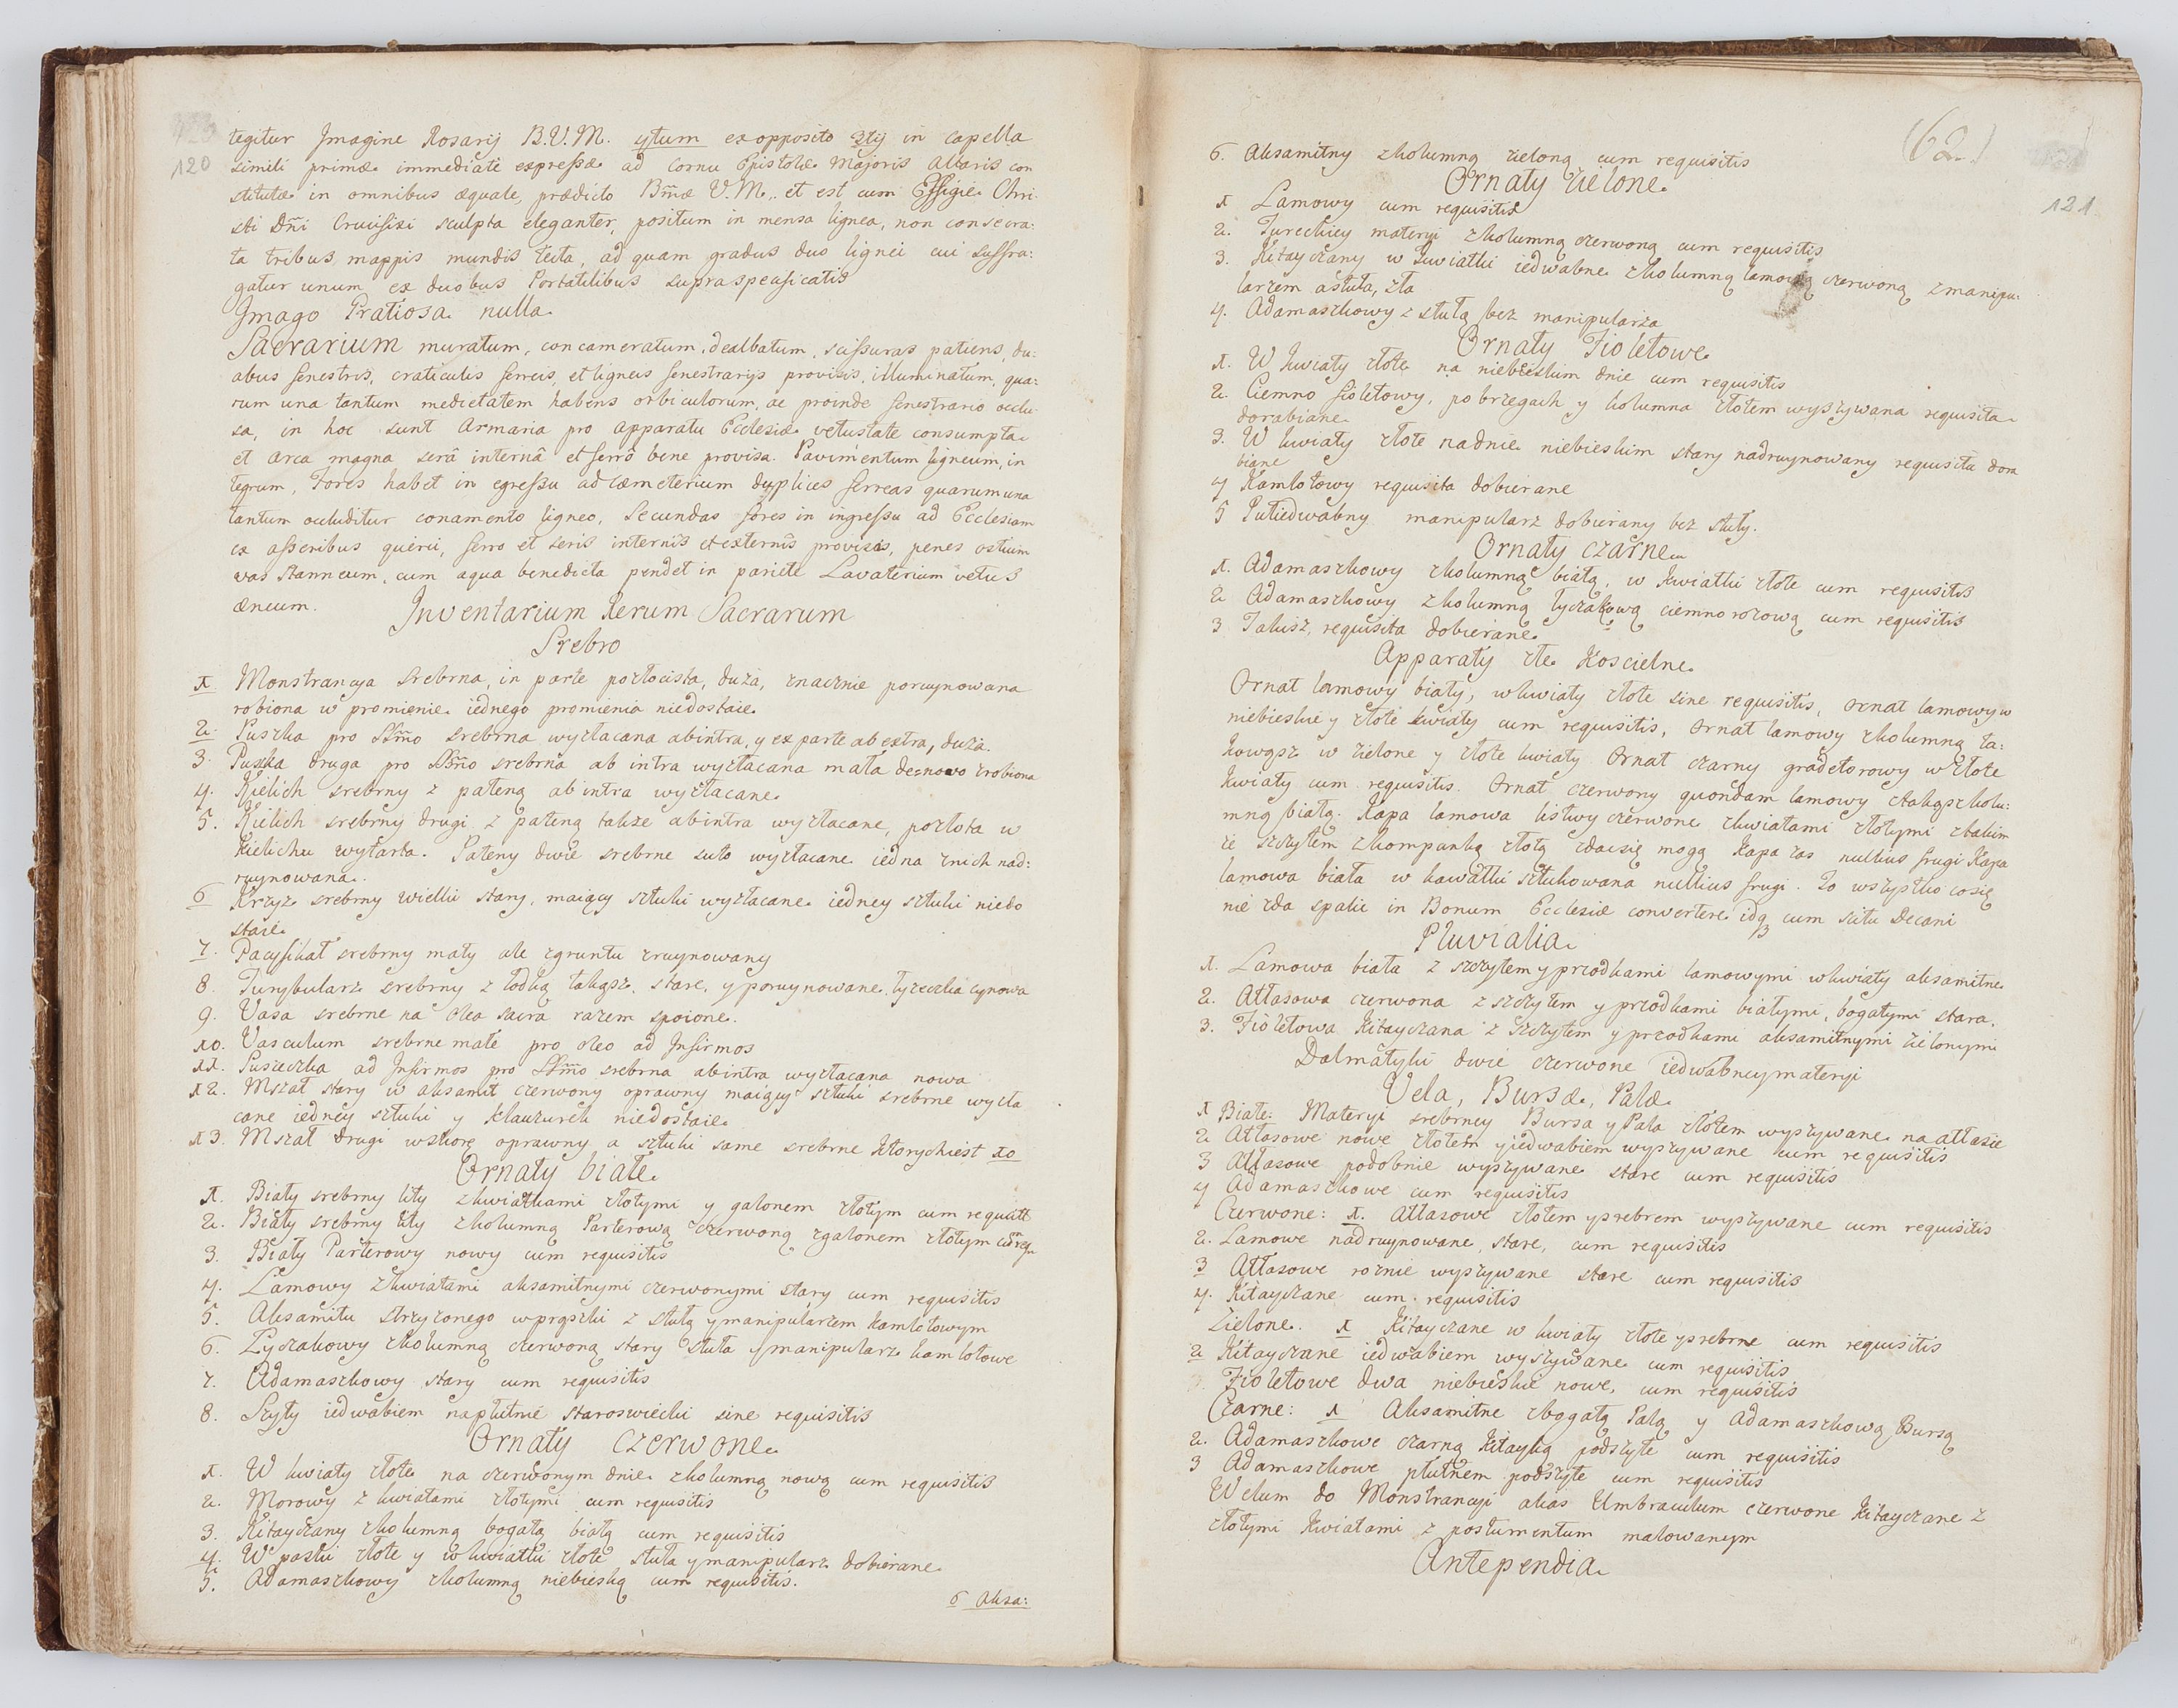 120
tegitur Jmagine Rosarij B.V.M. 4tum ex opposito 3tij in capella
simili primæ immediate expressæ ad cornu Epistolæ Majoris Altaris con
stitutæ in omnibus æquale, prædicto Bmæ V.M., et est cum Effigie Chri-
sti Dñi Crucifixi sculpta eleganter, positum in mensa lignea, non consecra:
ta tribus mappis mundis tecta, ad quam gradus duo lignei cui suffra:
gatur unum ex duobus Portatilibus supraspecificatis
Jmago Gratiosa nulla.
Sacrarium muratum, concameratum, dealbatum, scissuras patiens, du:
abus fenestris, craticulis ferreis, et ligneis fenestrarijs provisis, illuminatum, qua:
rum una tantum medietatem habens orbiculorum, ac proinde fenestrario occlu
sa, in hoc sunt Armaria pro apparatu Ecclesiæ vetustate consumpta
et Arca magna serâ internâ et ferrô bene provisa. Pavimentum ligneum, in
tegrum, Fores habet in egressu ad cæmeterium duplices ferreas quarum una
tantum occluditur conamento ligneo, Secundas fores in ingressu ad Ecclesiam
ex asseribus querci, ferro et seris internis et externis provisas, penes ostium
vas stanneum, cum aqua benedicta pendet in pariete Lavaterium vetus
æneum.
Jnventarium Rerum Sacrarum
Srebro
1. Monstrancya srebrna, in parte pozłocista, duża, znacznie poruynowana
robiona w promienie iednego promienia niedostaie.
2. Puszka pro SSmo srebrna wyzłacana ab intra, y ex parte ab extra, duża.
3. Puszka druga pro SSmo srebrna ab intra wyzłacana mała denovo zrobiona
4. Kielich srebrny z pateną ab intra wyzłacane
5. Kielich srebrny drugi z pateną także ab intra wyzłacane, pozłota w
kielichu wytarta. Pateny dwie srebrne suto wyzłacane iedna znich nad:
ruynowana.
6 Krzyż srebrny wielki stary, maiący sztuki wyzłacane iedney sztuki niedo
staie.
7. Pacyfikał srebrny mały ale zgruntu zruynowany
8. Turybularz srebrny z łodką takąsz, stare, y poruynowane, łyżeczka cynowa
9. Vasa srebrne na olea sacra razem spoione.
10. Vasculum srebrne małe pro oleo ad Jnfirmos
11. Puszeczka ad Jnfirmos pro SSmo srebrna abintra wyzłacana nowa
12. Mszał stary w aksamit czerwony oprawny maiący sztuki srebrne wyzła
cane iedney sztuki y klauzurek niedostaie
13. Mszał drugi wskorę oprawny a sztuki same srebrne ktorychiest 10
Ornaty białe.
1. Biały srebrny lity zkwiatkami złotymi y galonem złotym cum requisit
2. Biały srebrny lity zkolumną Parterową czerwoną zgalonem złotym cum requ
3. Biały Parterowy nowy cum requisitis
4. Lamowy zkwiatami aksamitnymi czerwonymi stary cum requisitis
5. Aksamitu strzyżonego wprąszki z stułą ymanipularzem kamlotowym
6. Łyczakowy zkolumną czerwoną stary stuła ymanipularz kamlotowe
7. Adamaszkowy stary cum requisitis
8. Szyty iedwabiem napłutnie staroswiecki sine requisitis
Ornaty czerwone.
1. W kwiaty złote na czerwonym dnie zkolumną nową cum requisitis
2. Morowy z kwiatami złotymi cum requisitis
3. Kitayczany zkolumną bogatą białą cum requisitis
4. W paski złote y w kwiatki złote stuła ymanipularz dobierane
5. Adamaszkowy zkolumną niebieską cum requisitis.
6 Aksa:
(62.)
121
6. Aksamitny zkolumną zieloną cum requisitis
Ornaty zielone.
1 Lamowy cum requisitis
2. Tureckiey materyi zkolumną czerwoną cum requisitis
3. Kitayczany w kwiatki iedwabne zkolumną lamową czerwoną zmanipu:
larzem astuła, zła
4. Adamaszkowy z stułą bez manipularza
Ornaty Fioletowe.
1. W kwiaty złote na niebieskim dnie cum requisitis
2. Ciemno fioletowy, po brzegach y kolumna złotem wyszywana requisita
dorabiane.
3. W kwiaty złote nadnie niebieskim stary nadruynowany requisita dora
biane
4 Kamlotowy requisita dobierane
5 Pułiedwabny manipularz dobierany bez stuły.
Ornaty czarne.
1. Adamaszkowy zkolumną białą, w kwiatki złote cum requisitis
2 Adamaszkowy zkolumną łyczakową ciemnorożową cum requisitis
3 Takisz, requisita dobierane.
Apparaty złe Koscielne.
Ornat lamowy biały, wkwiaty złote sine requisitis, ornat lamowy w
niebieskie y złote kwiaty cum requisitis, ornat lamowy zkolumną ta:
kowąsz w zielone y złote kwiaty Ornat czarny gradetorowy wzłote
kwiaty cum requisitis. Ornat czerwony quondam lamowy ztakąszkolu:
mną białą. Kapa lamowa listwy czerwone zkwiatami złotymi ztakim
że szczytem zkompanką złotą zdacsię mogą Kapa zas nullius frugi Kapa
lamowa biała w kawałki sztukowana nullius frugi. To wszystko cosię
nie zda spalić in Bonum Ecclesiæ convertere idq3 cum scitu Decani
Pluvialia.
1. Lamowa biała z szczytem yprzodkami lamowymi wkwiaty aksamitne
2. Atłasowa czerwona z szczytem y przodkami białymi, bogatymi stara.
3. Fioletowa Kitayczana z szczytem y przodkami aksamitnymi zielonymi
Dalmatyki dwie czerwone iedwabneymateryi
Vela, Bursæ, Palæ
1 Białe: Materyi srebrney Bursa y Pala złotem wyszywane na atłasie
2 Atłasowe nowe złotem yiedwabiem wyszywane cum requisitis
3 Atłasowe podobnie wyszywane stare cum requisitis
4 Adamaszkowe cum requisitis
Czerwone: 1. Atłasowe złotem ysrebrem wyszywane cum requisitis
2. Lamowe nadruynowane, stare, cum requisitis
3 Atłasowe rożnie wyszywane stare cum requisitis
4. Kitayczane cum requisitis
Zielone. 1 Kitayczane w kwiaty złote ysrebrne cum requisitis
2 Kitayczane iedwabiem wyszywane cum requisitis
Fioletowe dwa niebieskie nowe, cum requisitis
Czarne: 1 Aksamitne zbogatą Palą y Adamaszkową Bursą
2. Adamaszkowe czarną Kitayką podszyte cum requisitis
3 Adamaszkowe płutnem podszyte cum requisitis
Welum do Monstrancyi alias Umbraculum czerwone Kitayczane z
złotymi kwiatami z postumentum malowanym
Antependia.